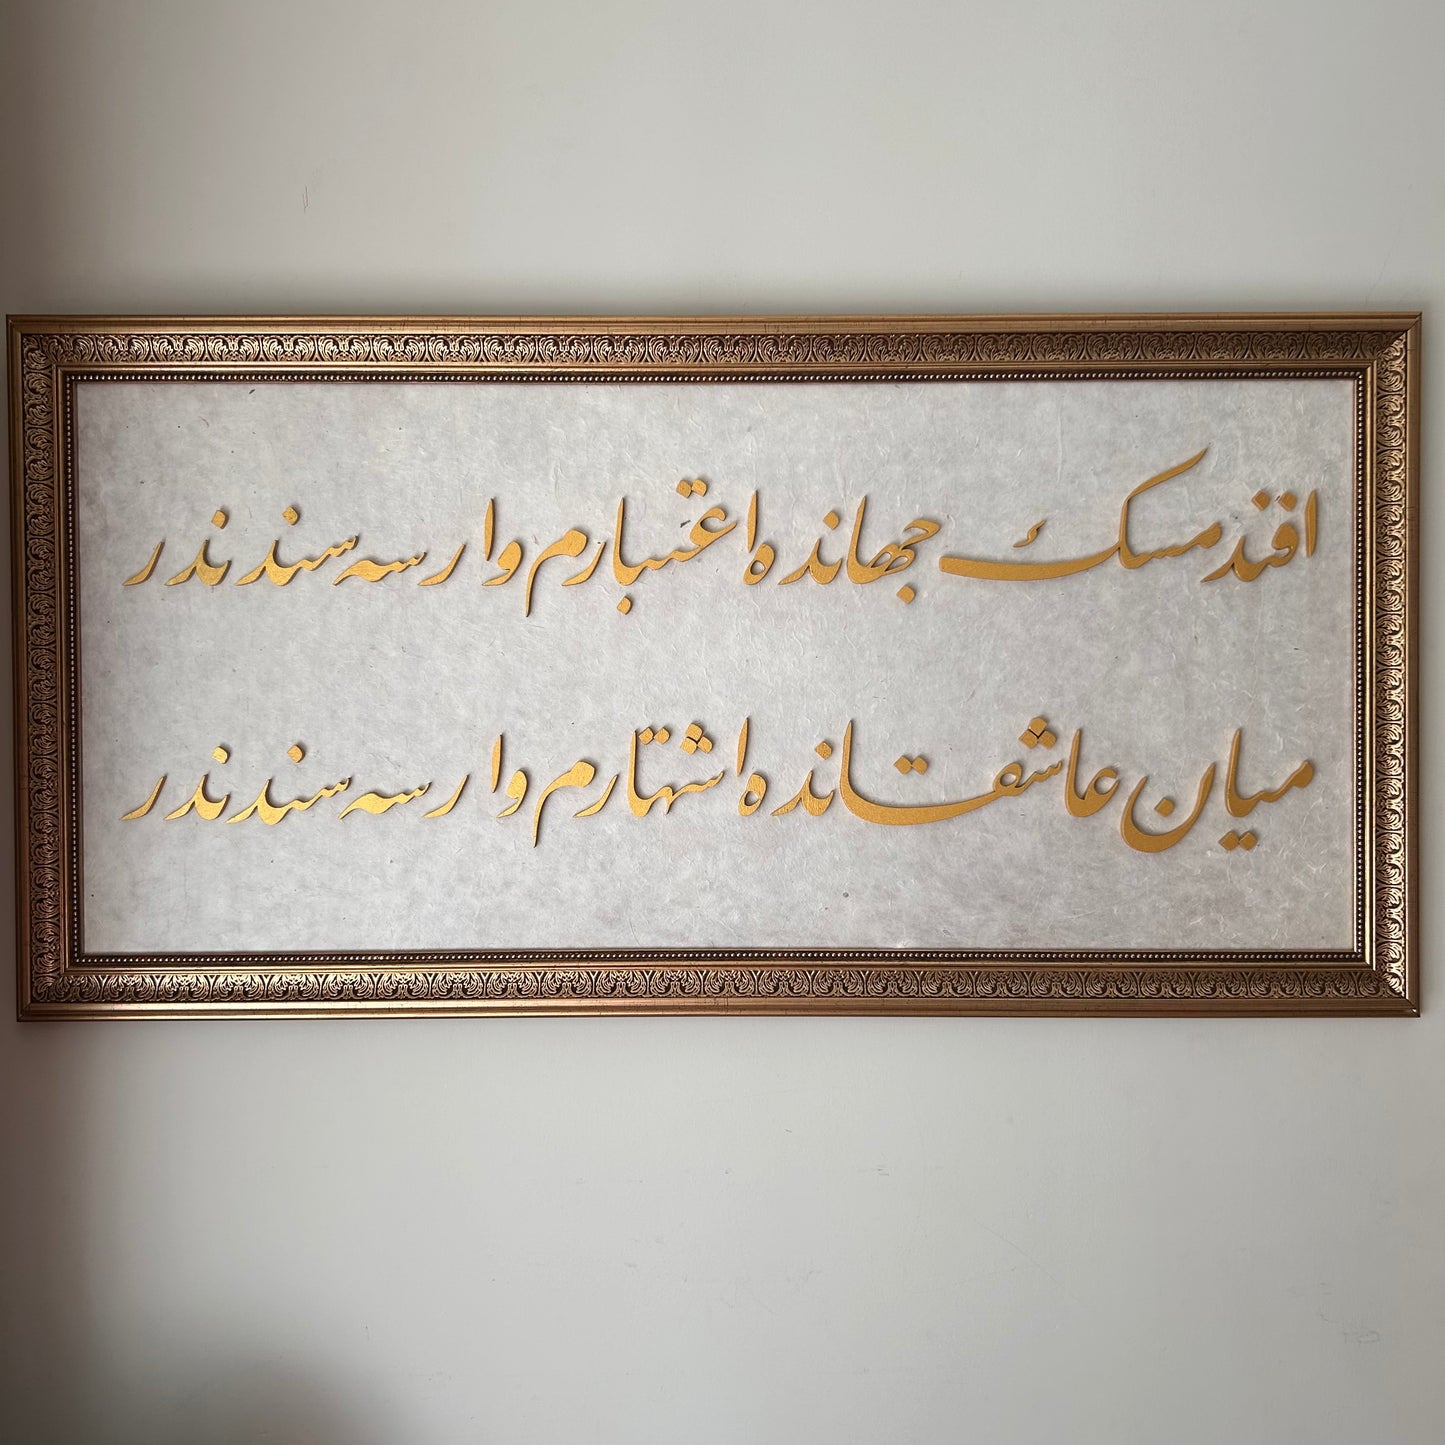 افندمسڭ جهانده اعتبارم وارسه سندندر
میان عاشقانده اشتهارم وارسه سندندر